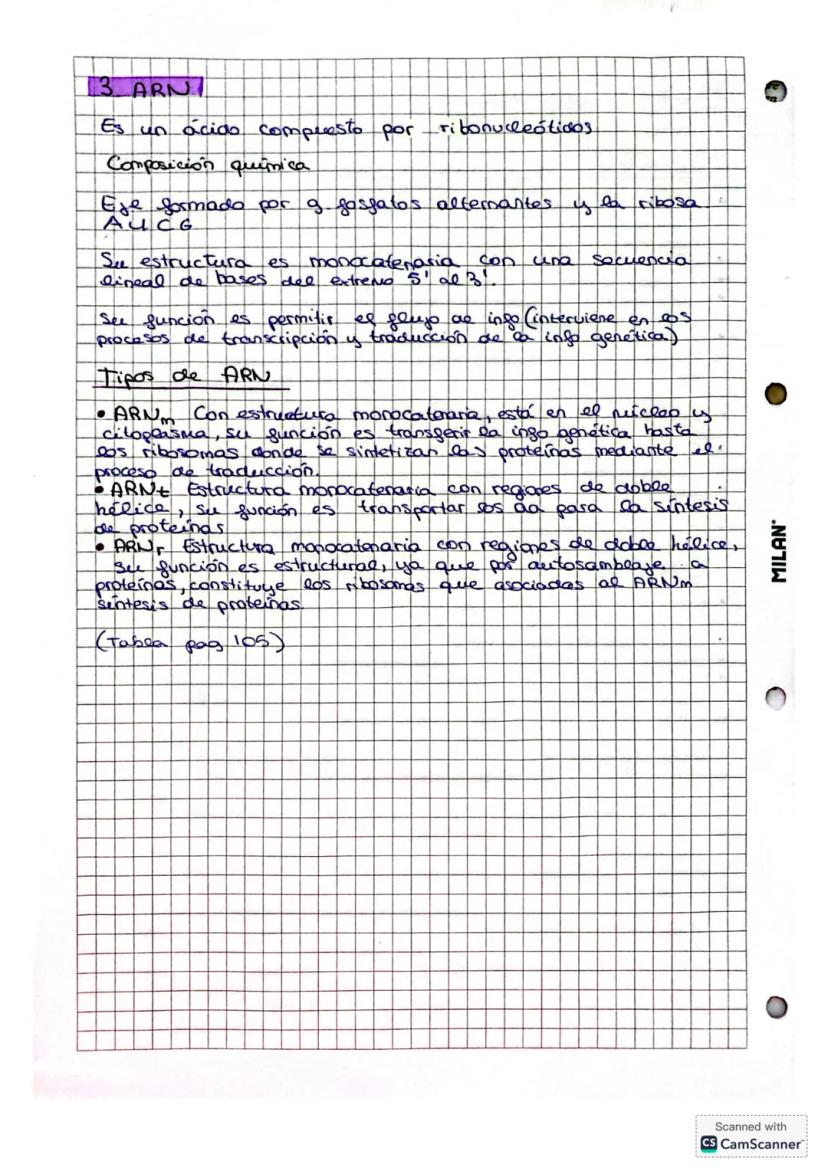 3. ARN
Es un ácido compuesto por ribonucleótidos
Composición química
Eje formado por g. fosfatos alternantes y la ribosa
A U C G
Su estructura es monocatenaria con una secuencia
lineal de bases del extremo 5' al 3'.
Su función es permitir el flujo de info (interviene en los
procesos de transcripción y traducción de la info genética)
Tipos de ARN
• ARNm Con estructura monocatenaria, está en el núcleo y
citoplasma, su función es transferir la info genética hasta
los ribosomas donde se sintetizan las proteínas mediante el
proceso de traducción.
• ARNt Estructura monocatenaria con regiones de doble
hélice, su función es transportar los aa para la síntesis
de proteínas
• ARNr Estructura monocatenaria con regiones de doble hélice,
su función es estructural, ya que por autosamblaje a
proteínas, constituye los ribosomas que asociadas al ARNm
síntesis de proteínas
(Tabla pag 105)
MILAN
Scanned with
CS CamScanner